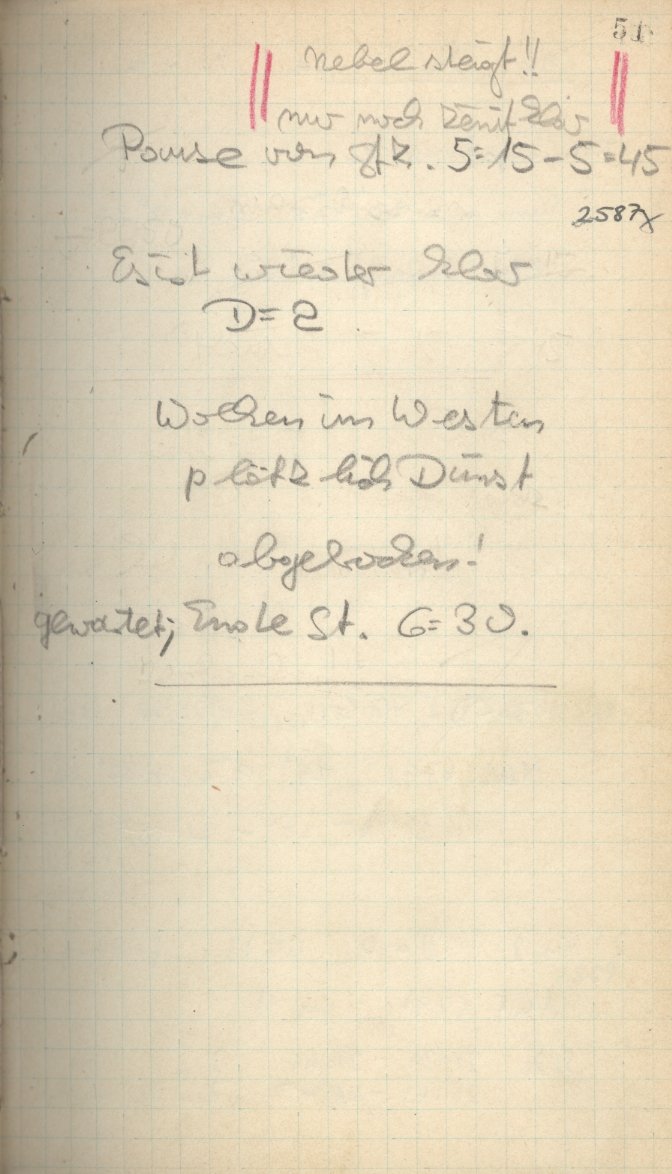 51
Nebel steigt!!
nur noch Zenit klar
Pause von 5=15-5=45
2587
Es ist wieder klar
D=2
Wolken im Westen
plötzlich Dunst
abgebrochen!
gewartet; Ende St. 6=30.